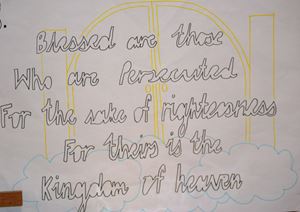 Blessed are those
Who are Persecuted
For the sake of rightersness
For theirs is the
Kingdom of heaven